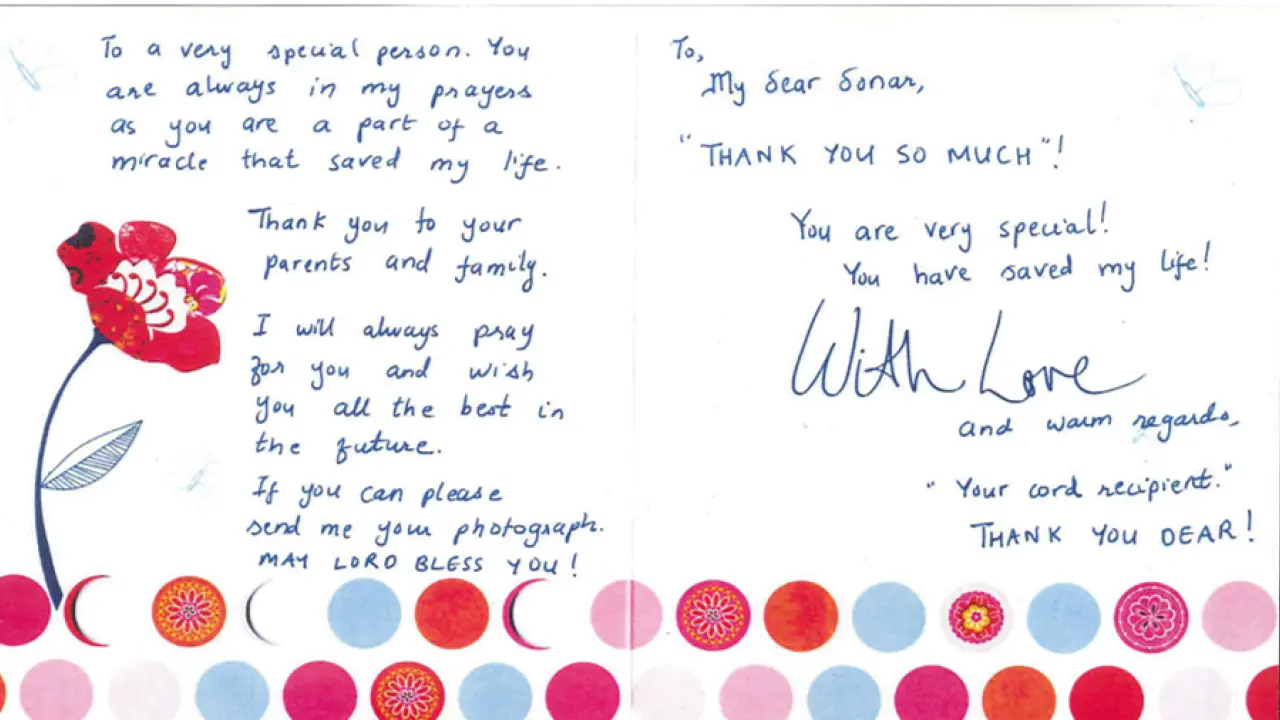 To a very special person. You
are always in my prayers
as you are a part of a
miracle that saved my life.
Thank you to your
parents and family.
I will always pray
for you and wish
you all the best in
the future.
If you can please
send me your photograph.
MAY LORD BLESS YOU!
To,
My dear Donar,
"THANK YOU SO MUCH"!
You are very special!
You have saved my life!
With Love
and warm regards,
"Your cord recipient."
THANK YOU DEAR!